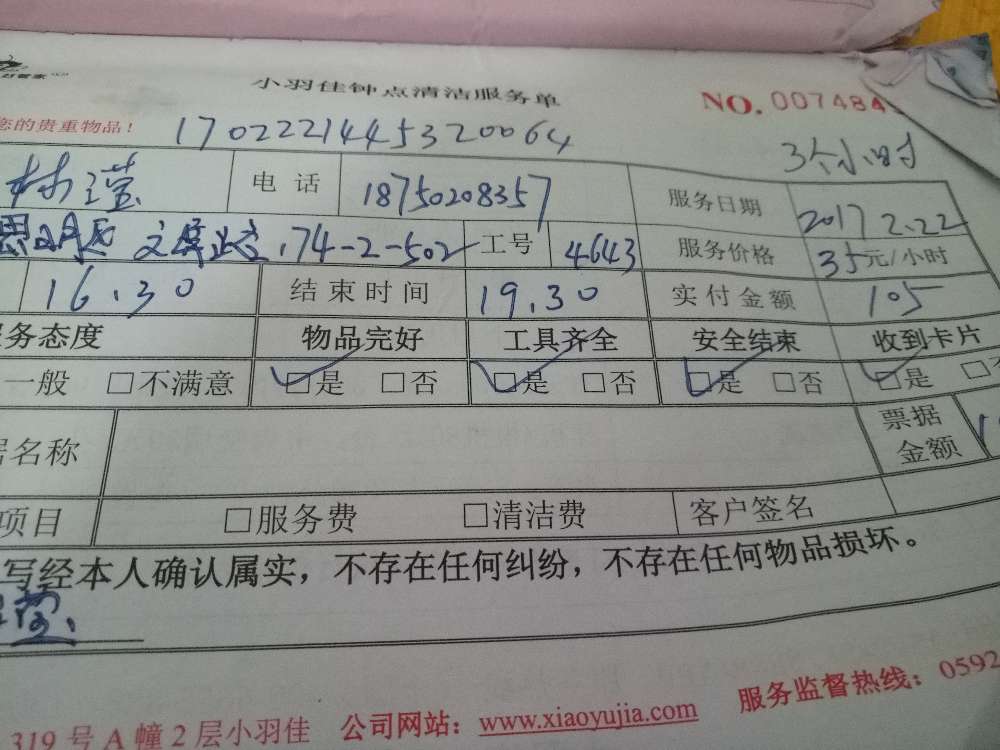 好管家
小羽佳钟点清洁服务单
NO. 007484
您的贵重物品！
1702221445320064
3个小时
林滢 电话 18750208357 服务日期 2017 2.22
思明区 174-2-502 工号 4643 服务价格 35元/小时
16.30 结束时间 19.30 实付金额 105
务态度 物品完好 工具齐全 安全结束 收到卡片
一般 □不满意 □是 □否 □是 □否 □是 □否 □是
名称 票据金额
项目 □服务费 □清洁费 客户签名
写经本人确认属实，不存在任何纠纷，不存在任何物品损坏。
滢
319号A幢2层小羽佳 公司网站：www.xiaoyujia.com 服务监督热线：0592